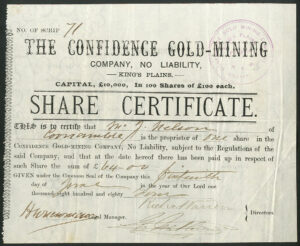 NO. OF SCRIP 71
THE CONFIDENCE GOLD-MINING
COMPANY, NO LIABILITY,
KING'S PLAINS.
CAPITAL, £10,000, In 100 Shares of £100 each.
SHARE CERTIFICATE.
THIS is to certify that Wm J. Nelson of
Coonamble is the proprietor of One share in
the Confidence Gold-mining Company, No Liability, subject to the Regulations of the
said Company, and that at the date hereof there has been paid up in respect of
such Share the sum of £
GIVEN under the Common Seal of the Company this Sixteenth
day of June in the year of Our Lord one
thousand eight hundred and eighty
Manager.
Directors